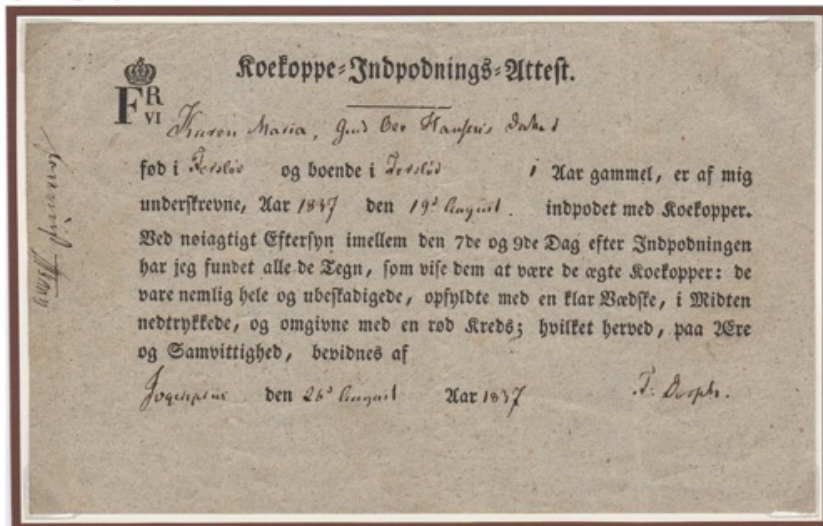 Koekoppe-Indpodnings-Attest.
FR
VI
Karen Maria, Gmd Ole Hansens
fød i og boende i 1 Aar gammel, er af mig
underskrevne, Aar 1837 den 19d August. indpodet med Koekopper.
Ved nøiagtigt Eftersyn imellem den 7de og 9de Dag efter Indpodningen
har jeg fundet alle de Tegn, som vise dem at være de ægte Koekopper: de
vare nemlig hele og ubeskadigede, opfyldte med en klar Vædske, i Midten
nedtrykkede, og omgivne med en rød Kreds; hvilket herved, paa Ære
og Samvittighed, bevidnes af
den 26d August Aar 1837